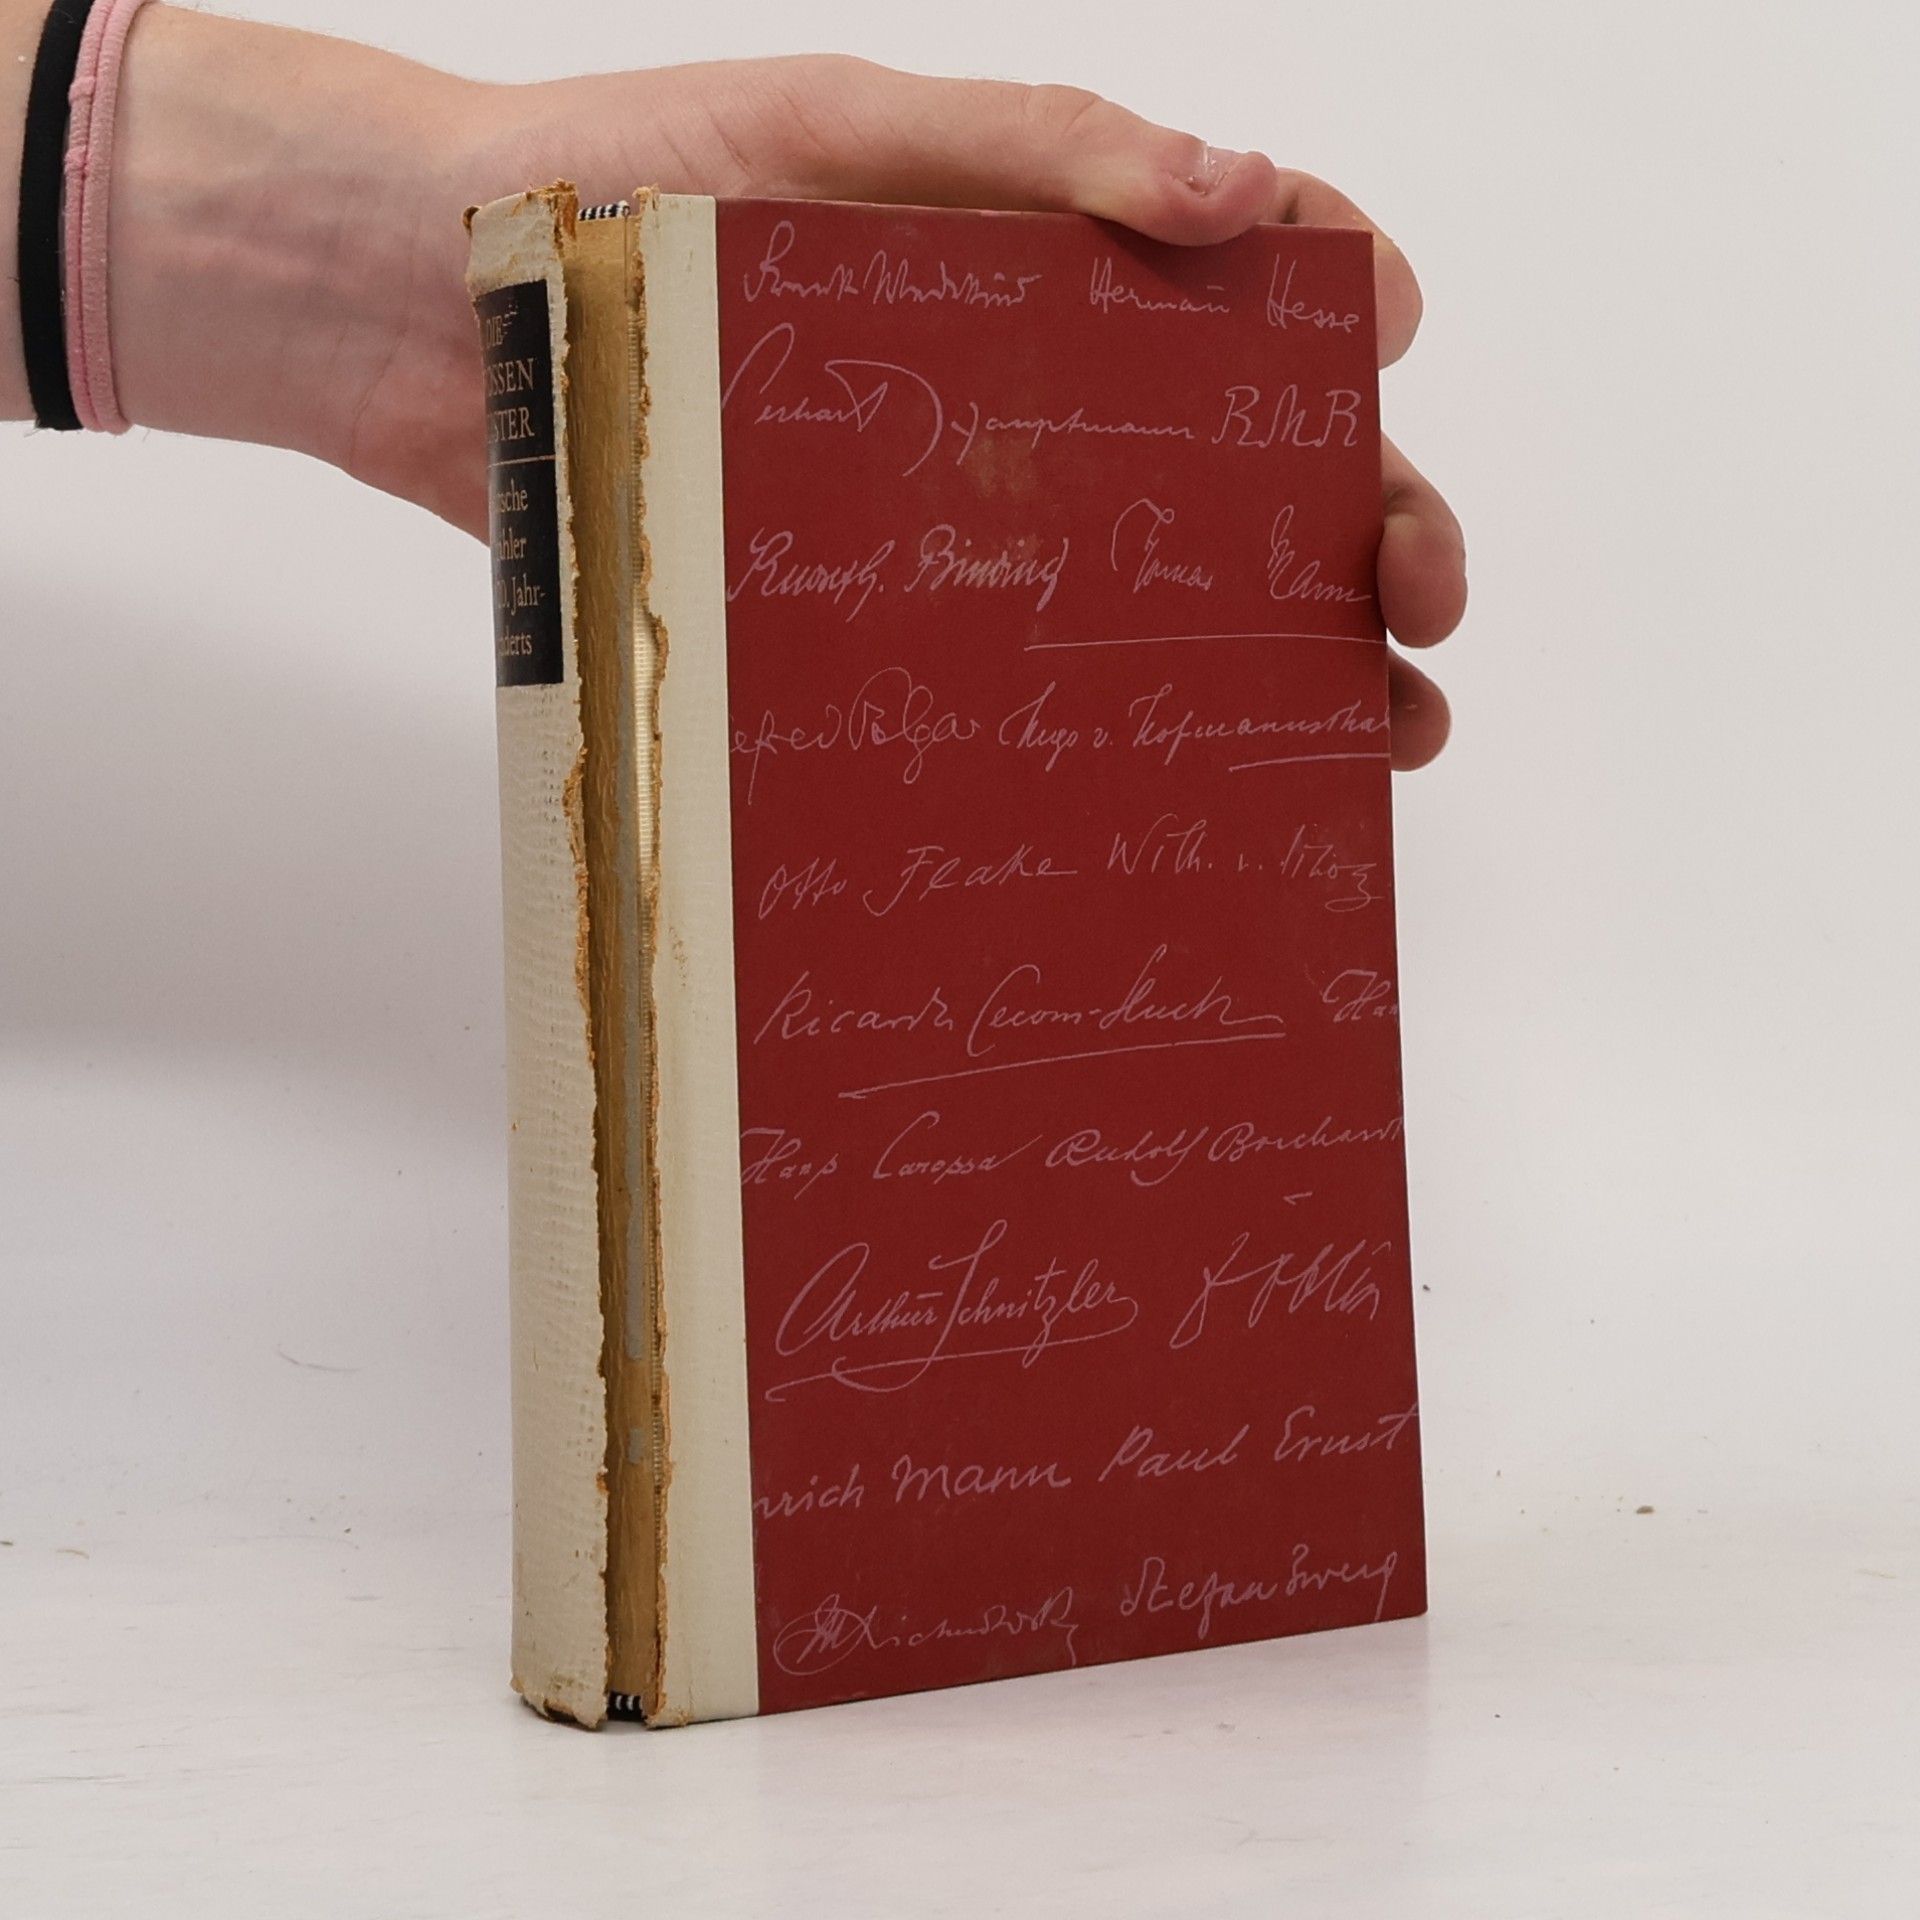 DIE
OSSEN
STER
sche
hler
0. Jahr-
derts
Frank Wedekind Hermann Hesse
Gerhart Hauptmann RMR
Rudolf G. Binding Tomas Mann
lfred Polgar Hugo v. Hofmannsthal
Otto Flake Wilh. v. Scholz
Ricarda Ceconi-Huch Han
Hans Carossa Rudolf Borchardt
Arthur Schnitzler Döblin
nrich Mann Paul Ernst
Stefan Zweig